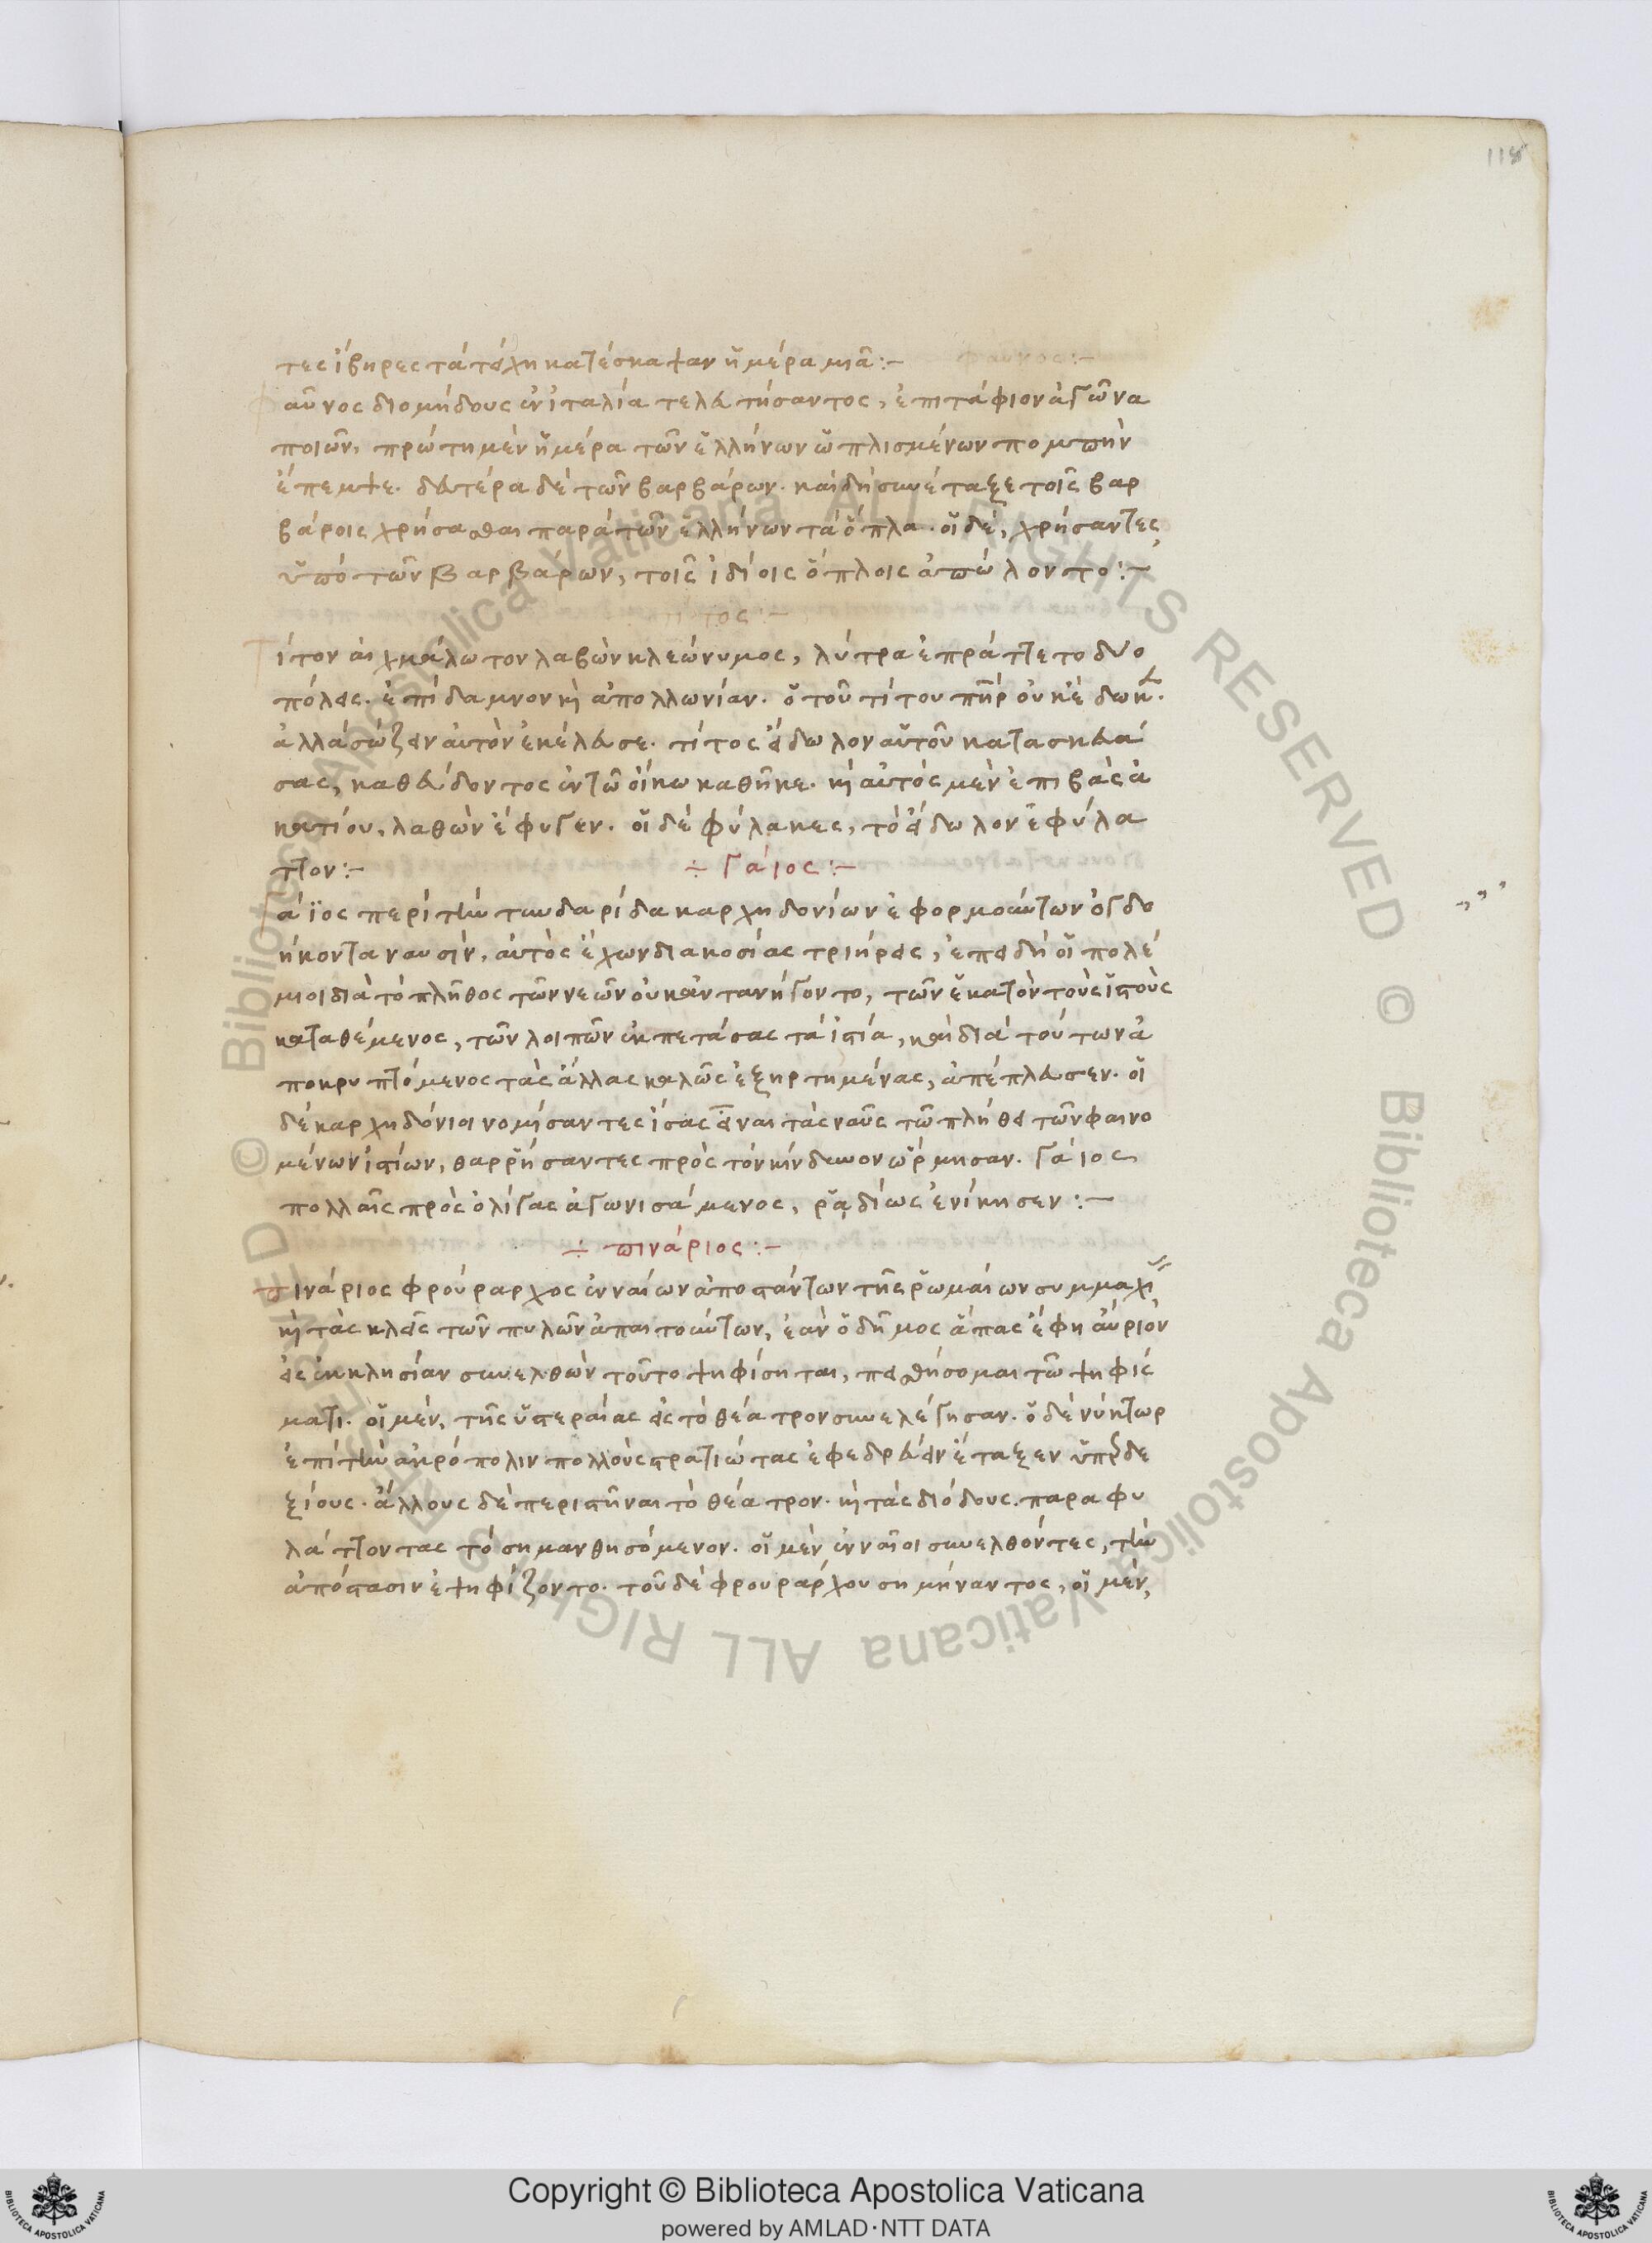 118
τες ἴβηρες τὰ τείχη κατέσκαψαν ἡμέρα μιᾶ :-
Φαῦνος :-
Φαῦνος διομήδους ἐν ἰταλία τελευτήσαντος, ἐπιτάφιον ἀγῶνα
ποιῶν, πρώτη μὲν ἡμέρα τῶν ἑλλήνων ὡπλισμένων πομπὴν
ἔπεμψε. δευτέρα δὲ τῶν βαρβάρων. καὶ δὴ συνέταξε τοῖς βαρ
βάροις χρήσασθαι παρὰ τῶν ἑλλήνων τὰ ὅπλα. οἱ δὲ, χρήσαντες
ὑπὸ τῶν βαρβάρων, τοῖς ἰδίοις ὅπλοις ἀπώλοντο :-
τίτος :-
Τίτον αἰχμάλωτον λαβὼν κλεώνυμος, λύτρα ἐπράττετο δύο
πόλεις. ἐπίδαμνον κὴ ἀπολλωνίαν. ὁ τοῦ τίτου πῆρ οὐκ ἔδωκ.
ἀλλὰ σώζειν αὐτὸν ἐκέλευσε. τίτος εἴδωλον αὑτοῦ κατασκευά
σας, καθεύδοντος ἐν τῶ οἴκω καθῆκε. κὴ αὐτὸς μὲν ἐπιβὰς ἀ
κατίου, λαθὼν ἔφυγεν. οἱ δὲ φύλακες, τὸ εἴδωλον ἐφύλα
ττον :-
÷ Γάιος :-
Γάϊος περὶ τὴν τυνδαρίδα καρχηδονίων ἐφορμούντων ὀγδο
ήκοντα ναυσὶν, αὐτὸς ἔχων διακοσίας τριήρεις, ἐπειδὴ οἱ πολέ
μιοι διὰ τὸ πλῆθος τῶν νεῶν οὐκ ἀντανήγοντο, τῶν ἑκατὸν τοὺς ἱστοὺς
καταθέμενος, τῶν λοιπῶν ἐκπετάσας τὰ ἱστία, καὶ διὰ τούτων ἀ
ποκρυπτόμενος τὰς ἄλλας καλῶς ἐξηρτημένας, ἀπέπλευσεν. οἱ
δὲ καρχηδόνιοι νομίσαντες ἴσας εἶναι τὰς ναῦς τῶ πλήθει τῶν φαινο
μένων ἱστίων, θαρρήσαντες πρὸς τὸν κίνδυνον ὥρμησαν. Γάιος
πολλαῖς πρὸς ὀλίγας ἀγωνισάμενος, ῥᾳδίως ἐνίκησεν :-
÷ πινάριος :-
πινάριος φρούραρχος ἐνναίων ἀποστάντων τῆς ῥωμαίων συμμαχί
κὴ τὰς κλεῖς τῶν πυλῶν ἀπαιτούντων, ἐὰν ὁ δῆμος ἅπας ἔφη αὔριον
εἰς ἐκκλησίαν συνελθὼν τοῦτο ψηφίσηται, πεισθήσομαι τῶ ψηφίς
ματι. οἱ μὲν, τῆς ὑστεραίας εἰς τὸ θέατρον συνελέγησαν. ὁ δὲ νύκτωρ
ἐπὶ τὴν ἀκρόπολιν πολλοὺς στρατιώτας ἐφεδρεύειν ἔταξεν ὑπὲρδε
ξίους. ἄλλους δὲ περιστῆναι τὸ θέατρον. κὴ τὰς διόδους. παραφυ
λάττοντας τὸ σημανθησόμενον. οἱ μὲν ἐνναῖοι συνελθόντες, τὴν
ἀπόστασιν ἐψηφίζοντο. τοῦ δὲ φρουράρχου σημήναντος, οἱ μὲν,
Copyright © Biblioteca Apostolica Vaticana
powered by AMLAD·NTT DATA